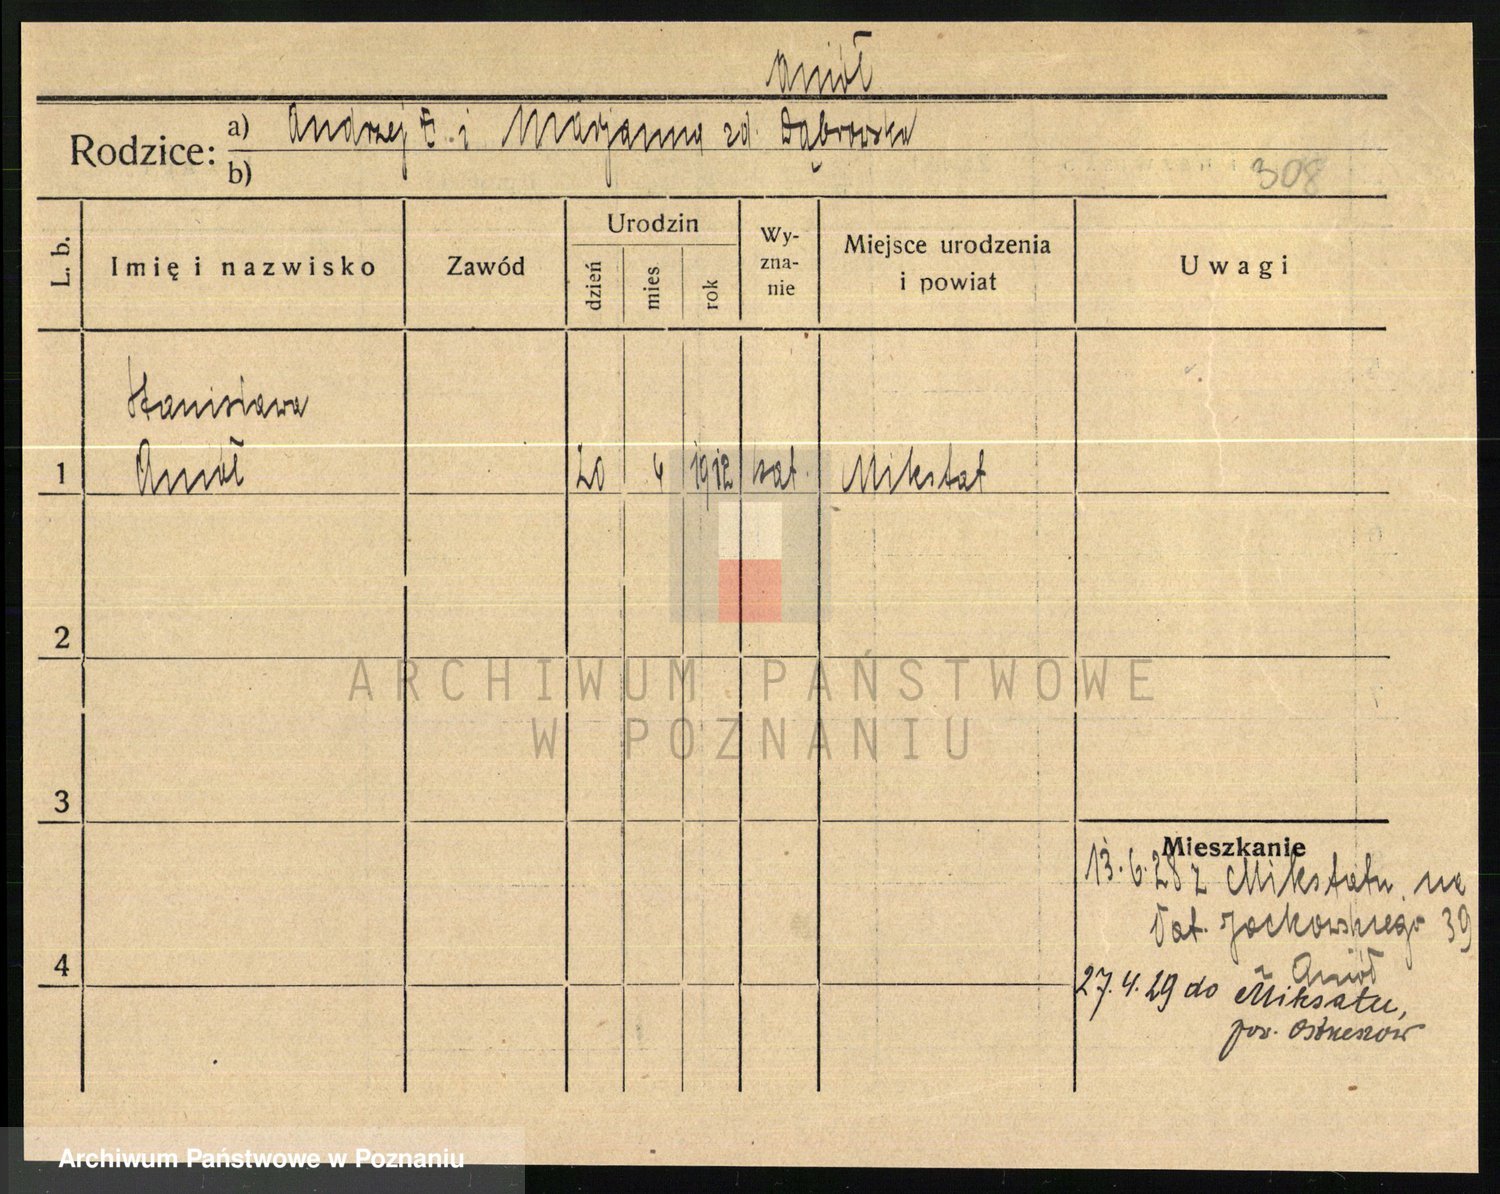 Anioł
Rodzice: a) Andrzej i Marjanna zd. Dąbrowska
b)
308
L. b. Imię i nazwisko Zawód Urodzin dzień mies rok Wy-zna-nie Miejsce urodzenia i powiat Uwagi
Stanisława
1 Anioł 20 4 1912 kat. Mikstat
2
ARCHIWUM PAŃSTWOWE
W POZNANIU
3
Mieszkanie
13.6.28 z Mikstatu na
Jackowskiego 39
4
z Anioł
27.4.29 do Miksatu,
pow. Ostrzeszów
Archiwum Państwowe w Poznaniu